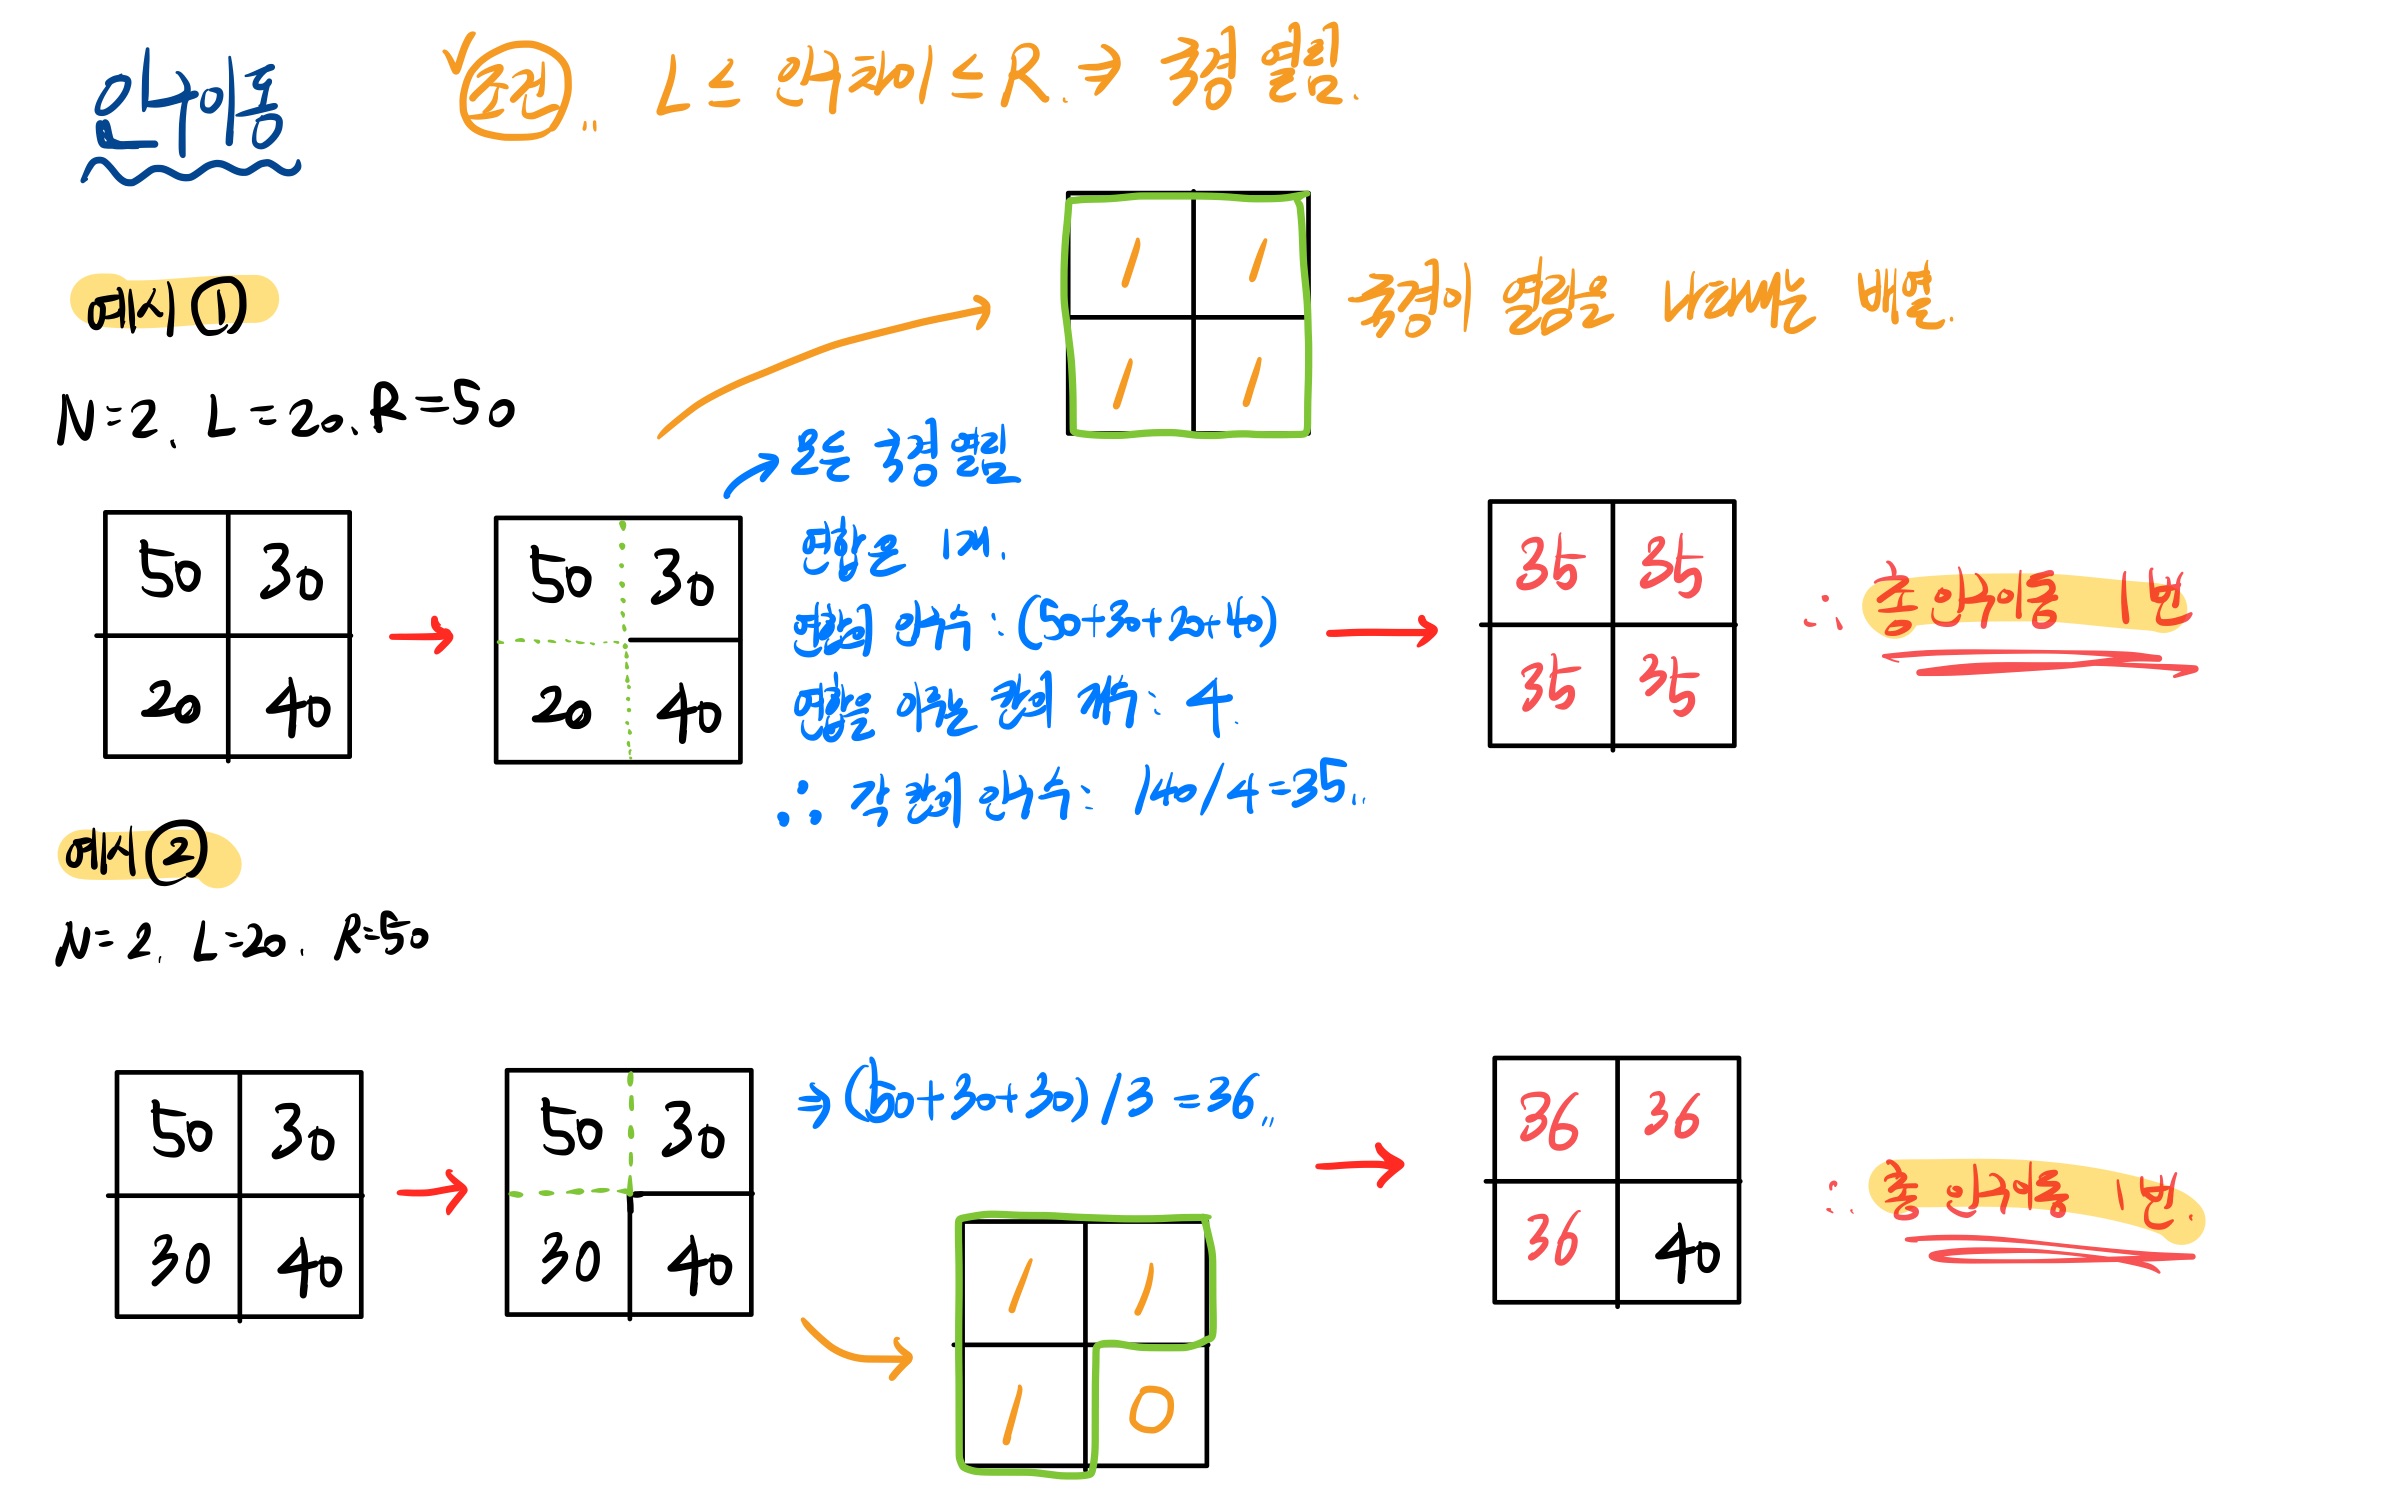 인구이동
조건.. L ≤ 인구차이 ≤ R. → 국경 열림.
예시 ①
N=2. L=20. R=50
1 1
1 1
국경이 열림을 나타내는 배열.
50 30
20 40
50 30
20 40
모든 국경 열림
연합은 1개.
연합의 인구수 : (50+30+20+40)
연합을 이루는 칸의 개수 : 4.
∴ 각 칸의 인구수 : 140/4=35..
35 35
35 35
∴ 총 인구이동 1번
예시 ②
N=2. L=20. R=50
50 30
30 40
50 30
30 40
⇒ (50+30+30)/3=36..
1 1
1 0
36 36
36 40
∴ 총 인구이동 1번.